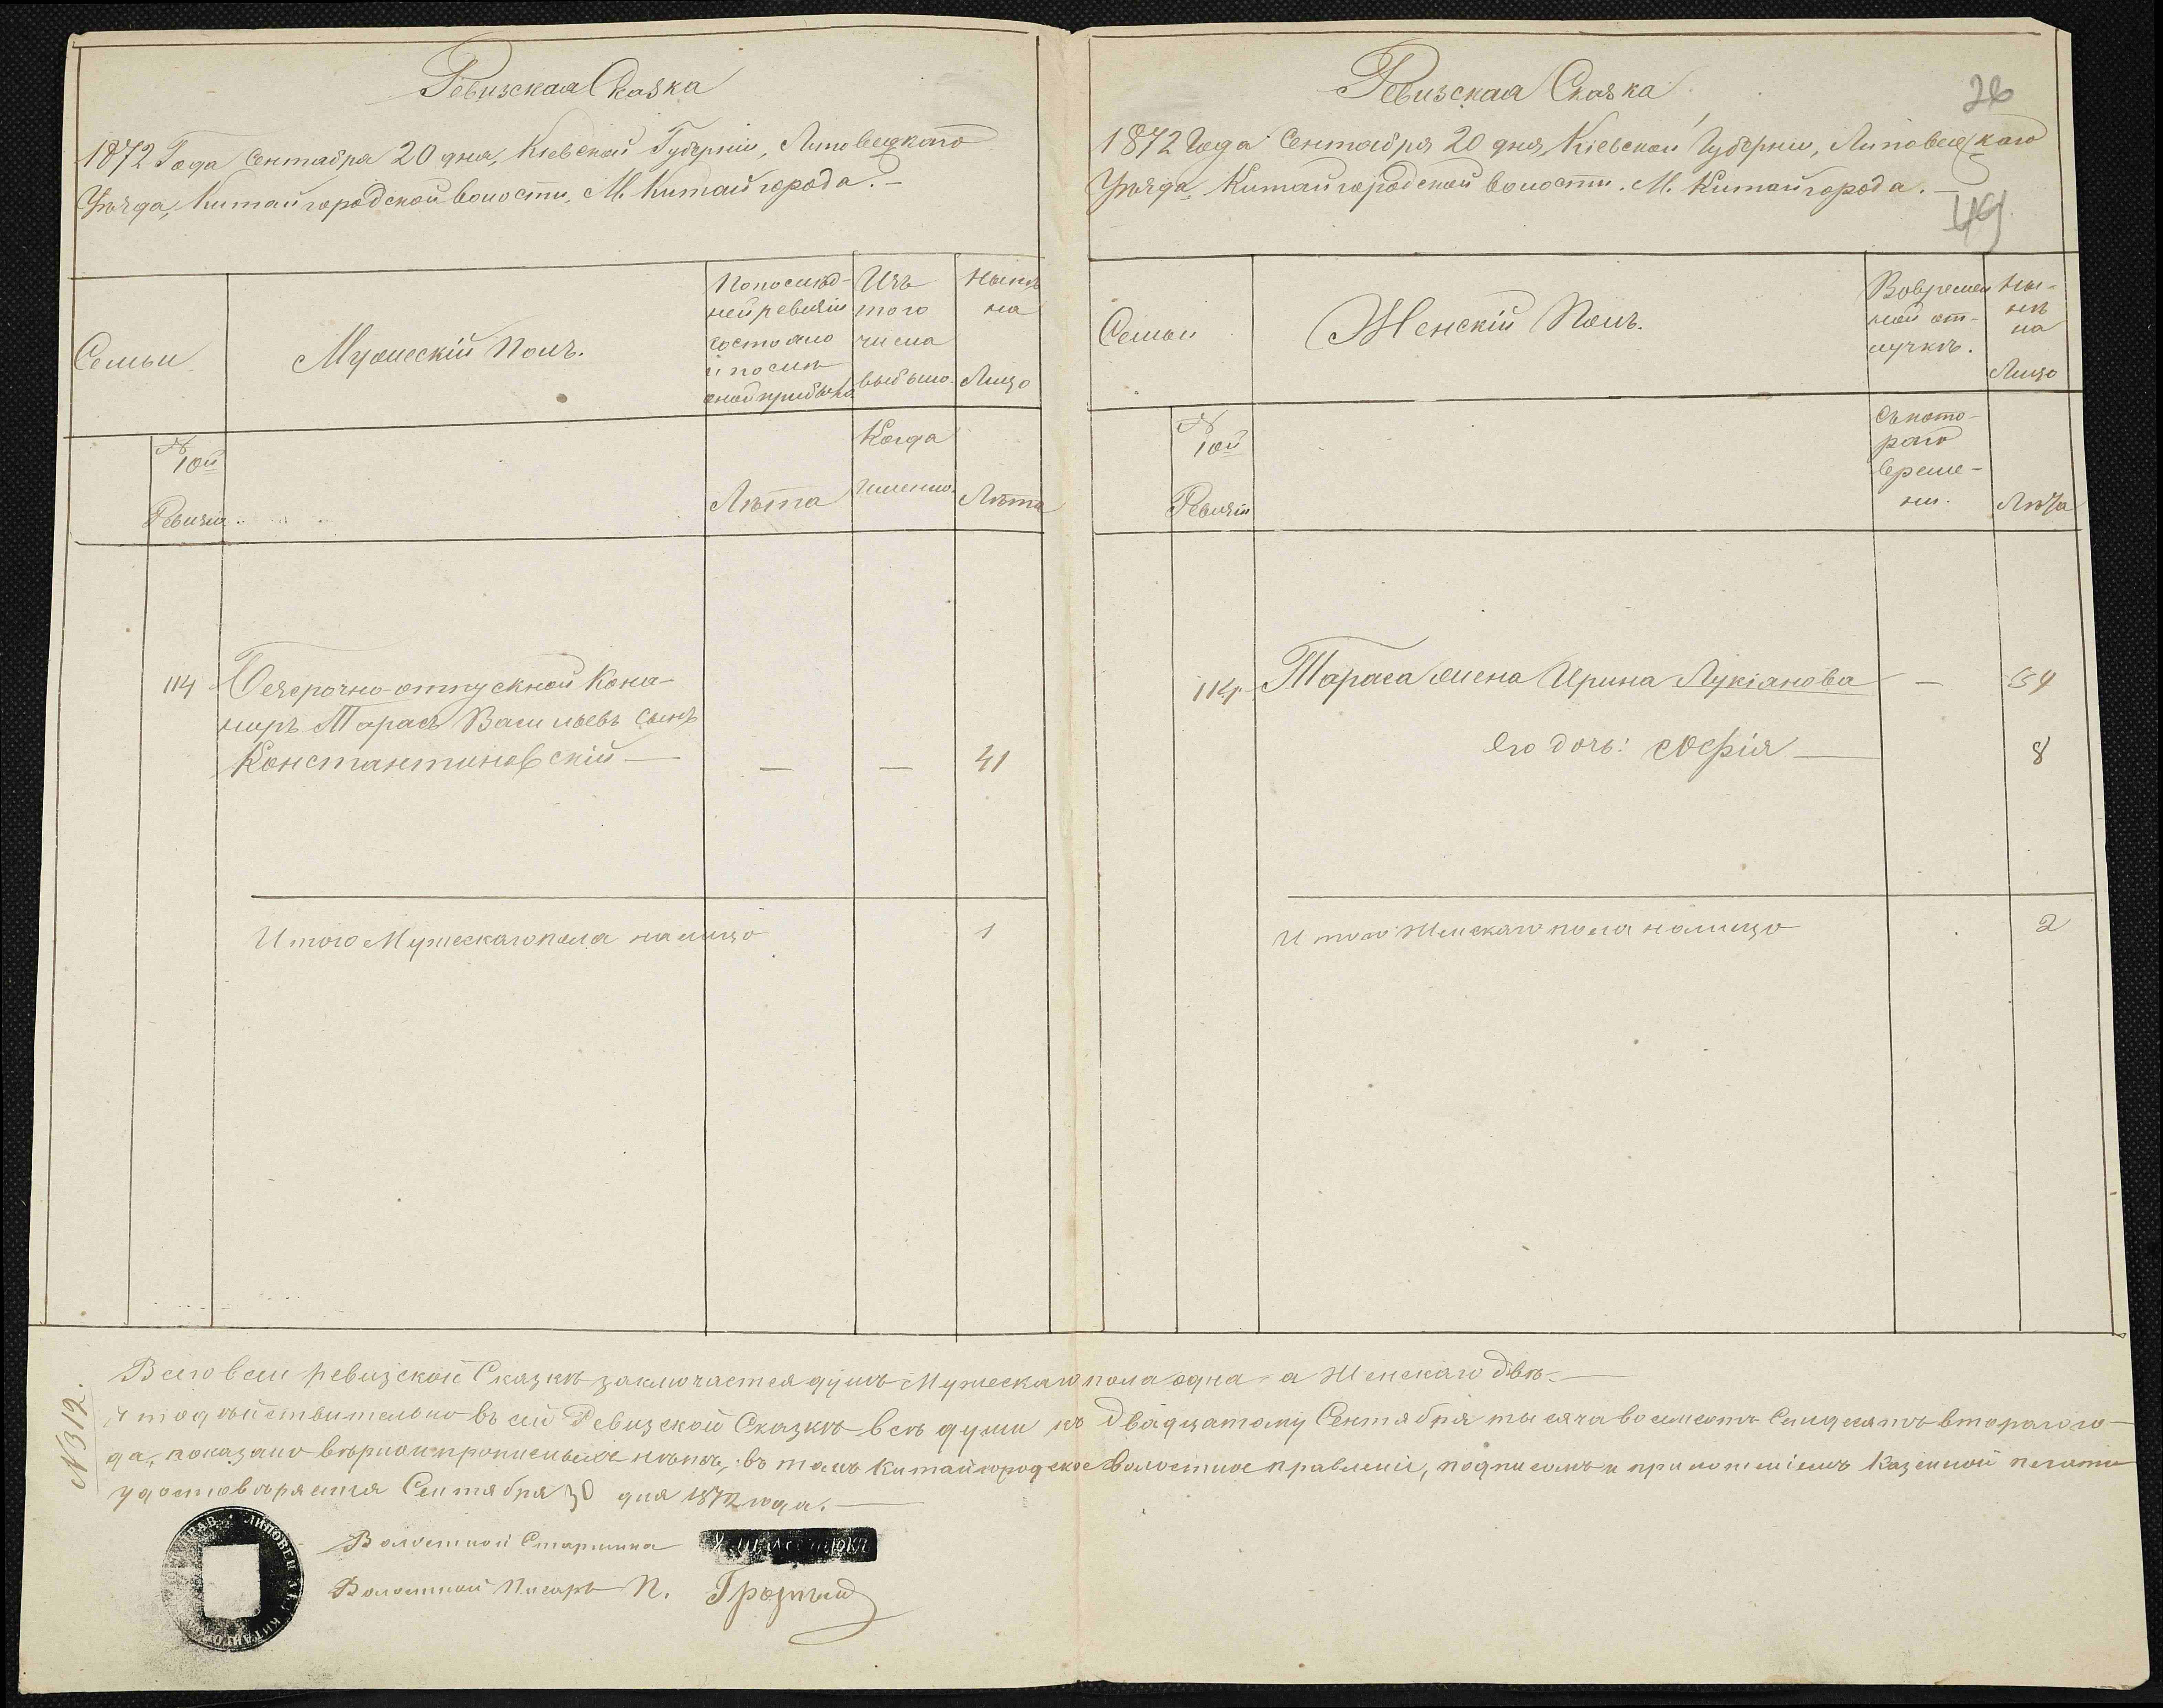 Ревизская Сказка
1872 Года Сентября 20 дня, Кіевской Губерніи, Липовецкаго
Уѣзда, Китайгородской волости, М. Китайгорода. —
Семьи
Мужескій Полъ.
По послѣд-
ней ревизіи
состояло
и послѣ
оной прибыло
Изъ
того
числа
выбыло
Нынѣ
на
Лицо
№
10й
Ревизіи.
Лѣта
Когда
именно.
Лѣта
114
Безсрочно-отпускной Кано-
ниръ Тарасъ Васильевъ сынъ
Константиновскій —
—
—
41
Итого Мужескаго пола на лицо
1
Ревизская Сказка
26
1872 Года Сентября 20 дня, Кіевской Губерніи, Липовецкаго
Уѣзда, Китайгородской волости. М. Китайгорода. —
49
Семьи
Женскій Полъ.
Во времен
ной от-
лучкѣ.
Ны-
нѣ
на
Лицо
№
10й
Ревизіи
Съ кото-
раго
време-
ни.
Лѣта
114
Тараса жена Ирина Лукіанова
—
34
Его дочь: Софія —
8
Итого Женскаго пола на лицо
2
№ 312.
Всего въ сей ревизской Сказкѣ заключается душъ Мужескаго пола одна а Женскаго двѣ. —
Что дѣйствительно въ сей Ревизской Сказкѣ всѣ души къ двадцатому Сентября тысяча восемсотъ семдесятъ втораго го-
да, показано вѣрно и прописныхъ нѣтъ, въ томъ Китайгородское Волостное правленіе, подписомъ и приложеніемъ Казенной печати
удостовѣряетъ Сентября 30 дня 1872 года. —
Волостной Старшина
Волостной Писарь П. Грозный